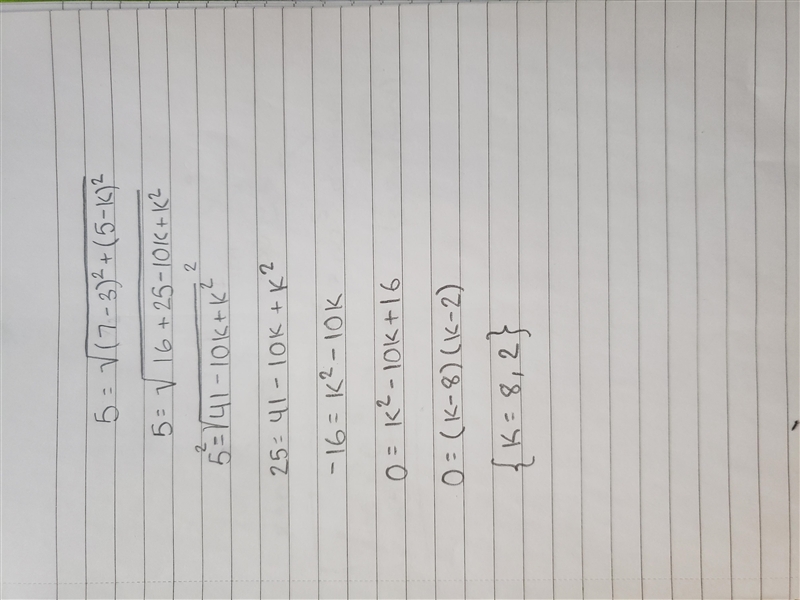 5 = √(7-3)² + (5-K)²
5 = √16 + 25 - 10K + K²
5² = √41 - 10K + K² ²
25 = 41 - 10K + K²
-16 = K² - 10K
0 = K² - 10K + 16
0 = (K-8)(K-2)
{K = 8, 2}